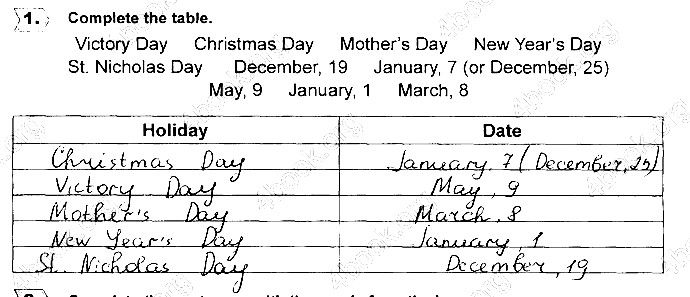 1. Complete the table.
Victory Day Christmas Day Mother's Day New Year's Day
St. Nicholas Day December, 19 January, 7 (or December, 25)
May, 9 January, 1 March, 8
Holiday Date
Christmas Day January, 7 (December, 25)
Victory Day May, 9
Mother's Day March, 8
New Year's Day January, 1
St. Nicholas Day December, 19